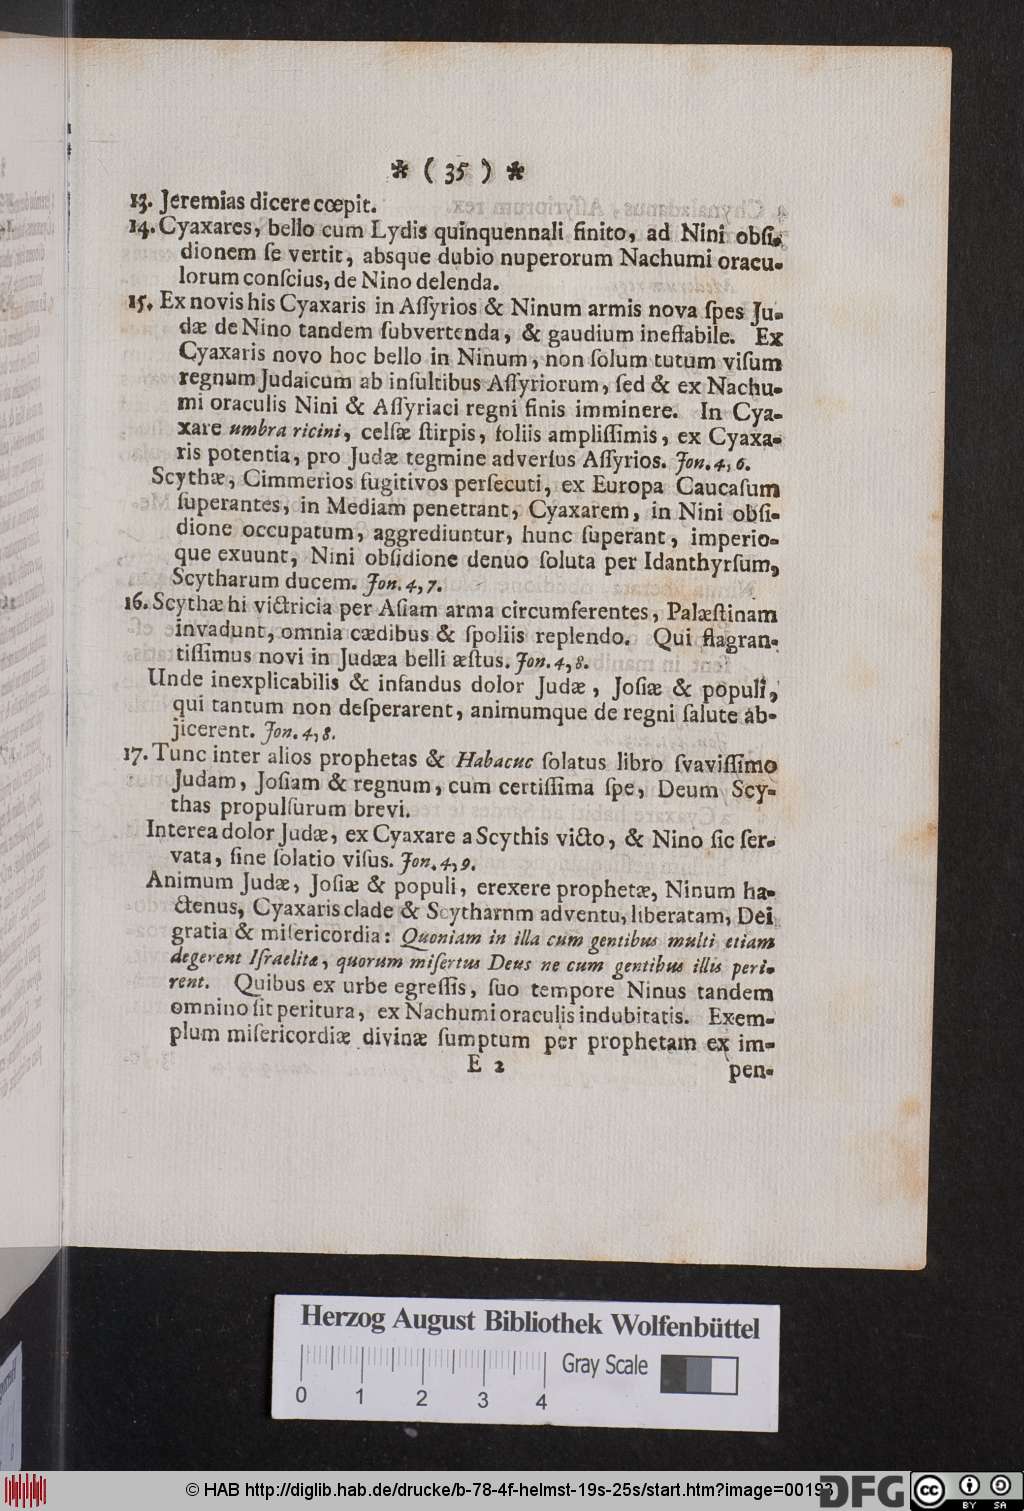 * ( 35 ) *
13. Jeremias dicere cœpit.
14. Cyaxares, bello cum Lydis quinquennali finito, ad Nini obſi-
dionem ſe vertit, absque dubio nuperorum Nachumi oracu-
lorum conſcius, de Nino delenda.
15. Ex novis his Cyaxaris in Aſſyrios & Ninum armis nova ſpes Ju-
dæ de Nino tandem ſubvertenda, & gaudium ineffabile. Ex
Cyaxaris novo hoc bello in Ninum, non ſolum tutum viſum
regnum Judaicum ab inſultibus Aſſyriorum, ſed & ex Nachu-
mi oraculis Nini & Aſſyriaci regni finis imminere. In Cya-
xare umbra ricini, celſæ ſtirpis, foliis ampliſſimis, ex Cyaxa-
ris potentia, pro Judæ tegmine adverſus Aſſyrios. Jon. 4, 6.
Scythæ, Cimmerios fugitivos perſecuti, ex Europa Caucaſum
ſuperantes, in Mediam penetrant, Cyaxarem, in Nini obſi-
dione occupatum, aggrediuntur, hunc ſuperant, imperio-
que exuunt, Nini obſidione denuo ſoluta per Idanthyrſum,
Scytharum ducem. Jon. 4, 7.
16. Scythæ hi victricia per Aſiam arma circumferentes, Palæſtinam
invadunt, omnia cædibus & ſpoliis replendo. Qui flagran-
tiſſimus novi in Judæa belli æſtus. Jon. 4, 8.
Unde inexplicabilis & infandus dolor Judæ, Joſiæ & populi,
qui tantum non deſperarent, animumque de regni ſalute ab-
jicerent. Jon. 4, 8.
17. Tunc inter alios prophetas & Habacuc ſolatus libro ſvaviſſimo
Judam, Joſiam & regnum, cum certiſſima ſpe, Deum Scy-
thas propulſurum brevi.
Interea dolor Judæ, ex Cyaxare a Scythis victo, & Nino ſic ſer-
vata, ſine ſolatio viſus. Jon. 4, 9.
Animum Judæ, Joſiæ & populi, erexere prophetæ, Ninum ha-
ctenus, Cyaxaris clade & Scytharnm adventu, liberatam, Dei
gratia & miſericordia: Quoniam in illa cum gentibus multi etiam
degerent Iſraelitæ, quorum miſertus Deus ne cum gentibus illis peri-
rent. Quibus ex urbe egreſſis, ſuo tempore Ninus tandem
omnino ſit peritura, ex Nachumi oraculis indubitatis. Exem-
plum miſericordiæ divinæ ſumptum per prophetam ex im-
E 2 pen-
Herzog August Bibliothek Wolfenbüttel
Gray Scale
0 1 2 3 4
© HAB http://diglib.hab.de/drucke/b-78-4f-helmst-19s-25s/start.htm?image=00193
DFG cc BY SA